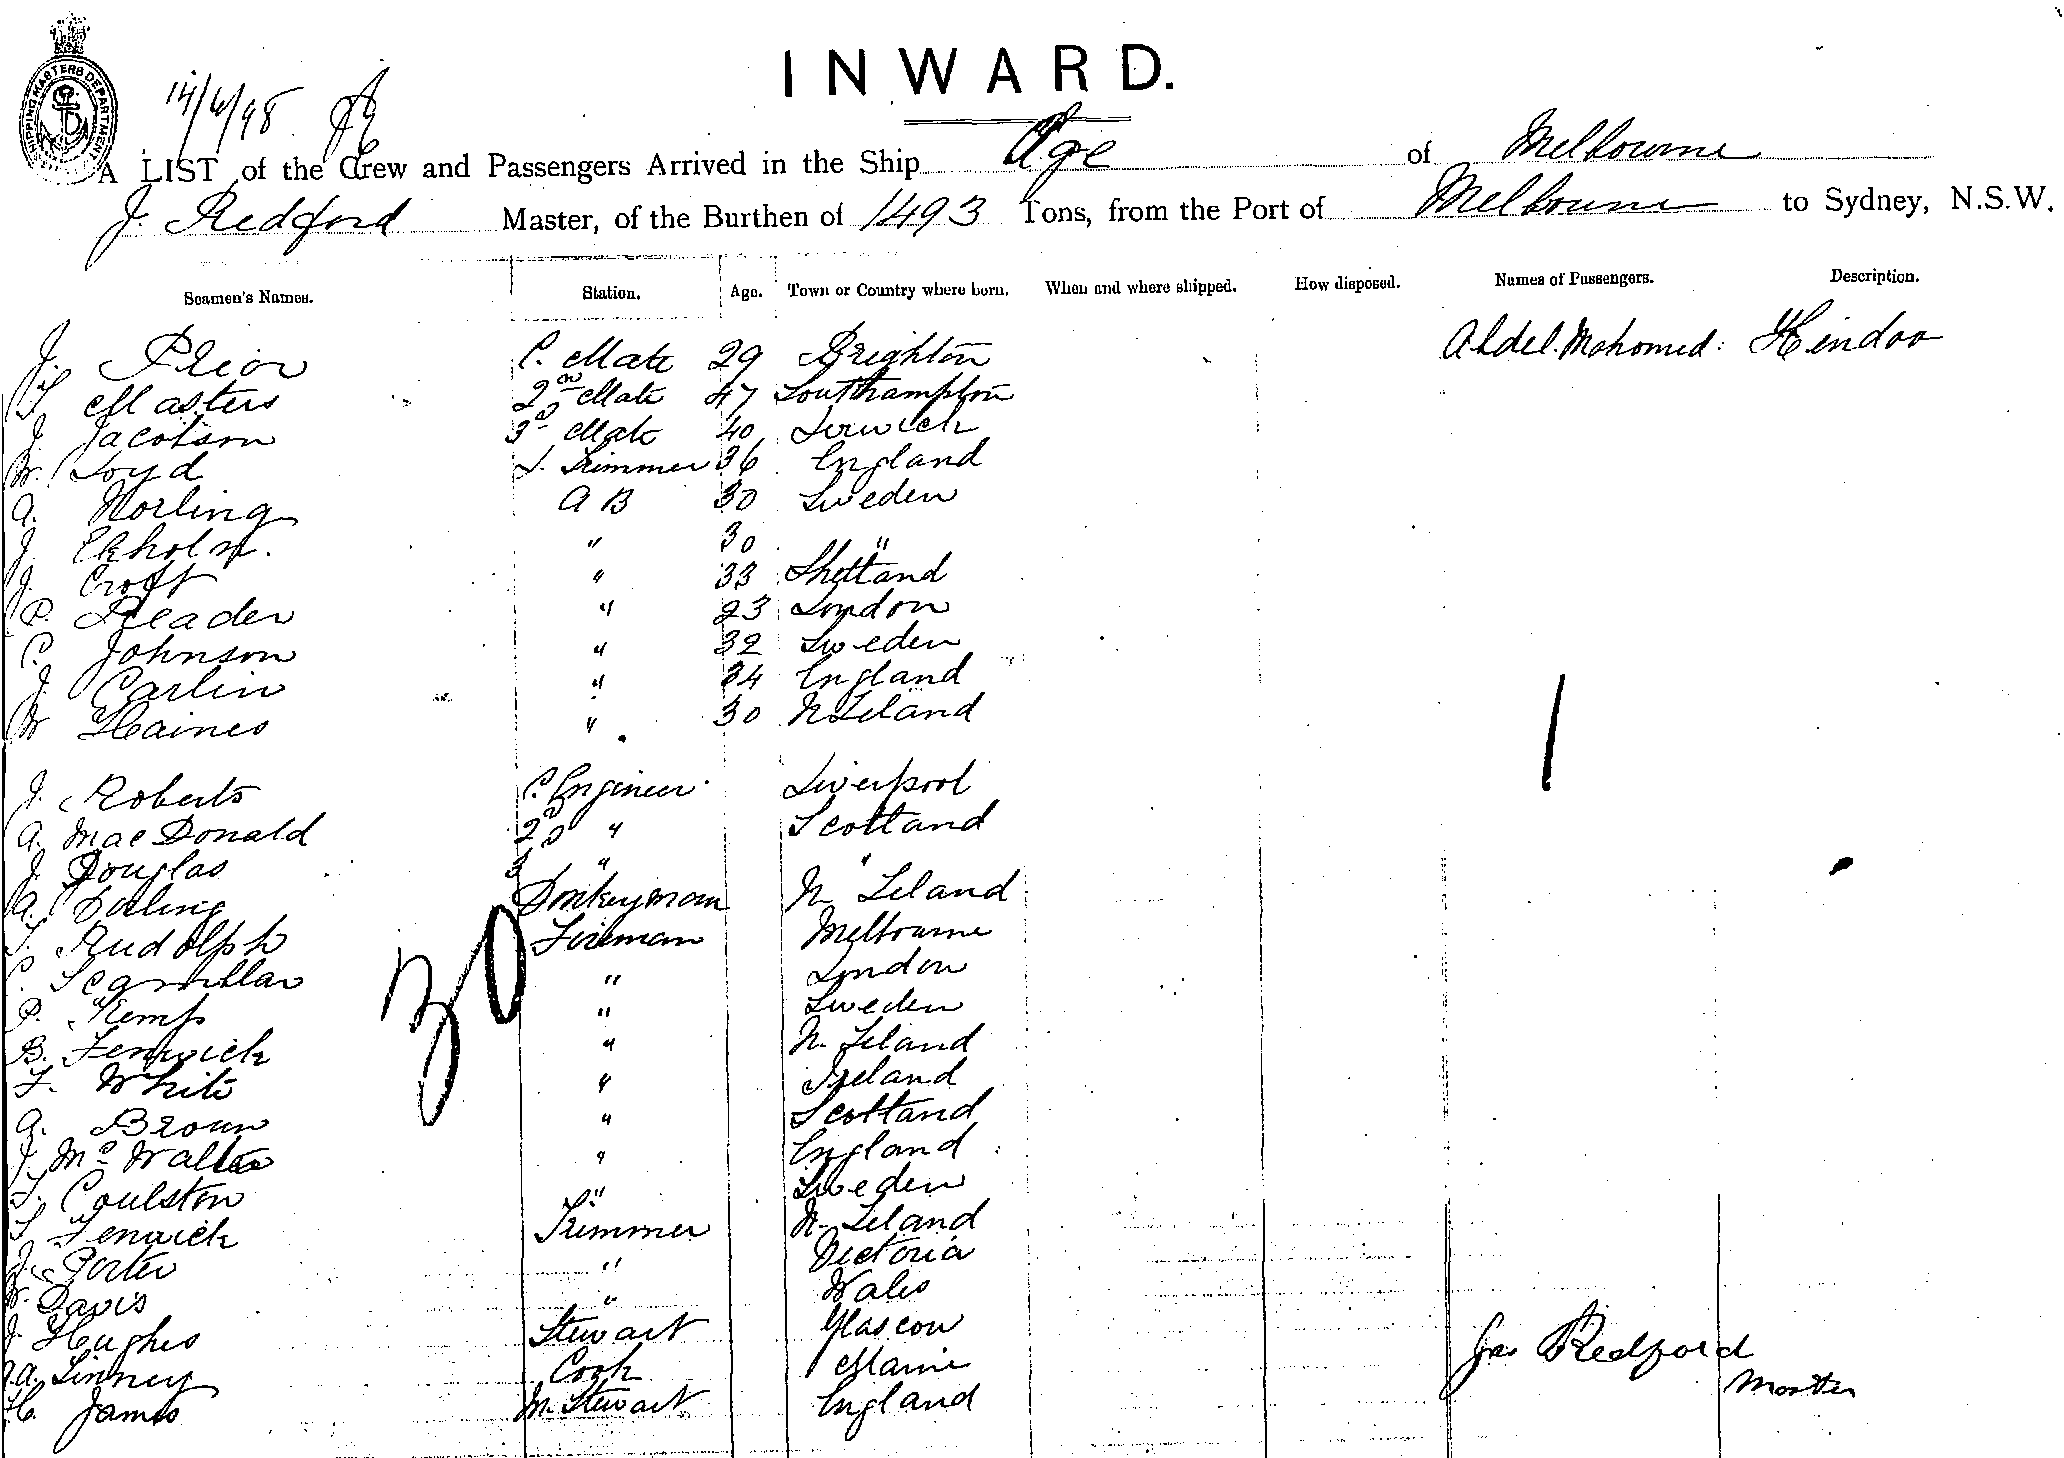 SHIPPING MASTERS DEPARTMENT
INWARD.
14/6/98
A LIST of the Crew and Passengers Arrived in the Ship Age of Melbourne
J. Redford Master, of the Burthen of 1493 Tons, from the Port of Melbourne to Sydney, N.S.W.
Seamen's Names. Station. Age. Town or Country where born. When and where shipped. How disposed. Names of Passengers. Description.
J. Prior C. Mate 29 Brighton Abdel. Mahomed: Hindoo
Masters 2nd Mate 47 Southampton
J. Jacobson 3d Mate 40 Lerwick
W. Loyd L. Trimmer 36 England
A. Norling A B 30 Sweden
J. Ekholm. " 30 "
J. Croft " 33 Shetland
P. Reader " 23 London
C. Johnson " 32 Sweden
J. Carlin " 34 England
W Haines " 30 N Zeland
1
J. Roberts C. Engineer Liverpool
A. MacDonald 2d " Scotland
J. Douglas 3 " "
A. Donkeyman N Zeland
30
Rudolph Fireman Melbourne
C. " London
P. Kemp " Sweden
B. Fenwick " N. Zeland
F. White " Ireland
A. Broun " Scotland
J. Mc Walter " England
T. Coulston " Sweden
T. Fenwick Trimmer N. Zeland
J. Porter " Victoria
W. Davis " Wales
J. Hughes Stewart Glascow
Jas Redford
A. Linney Cook Maine
Master
H. James M. Stewart England